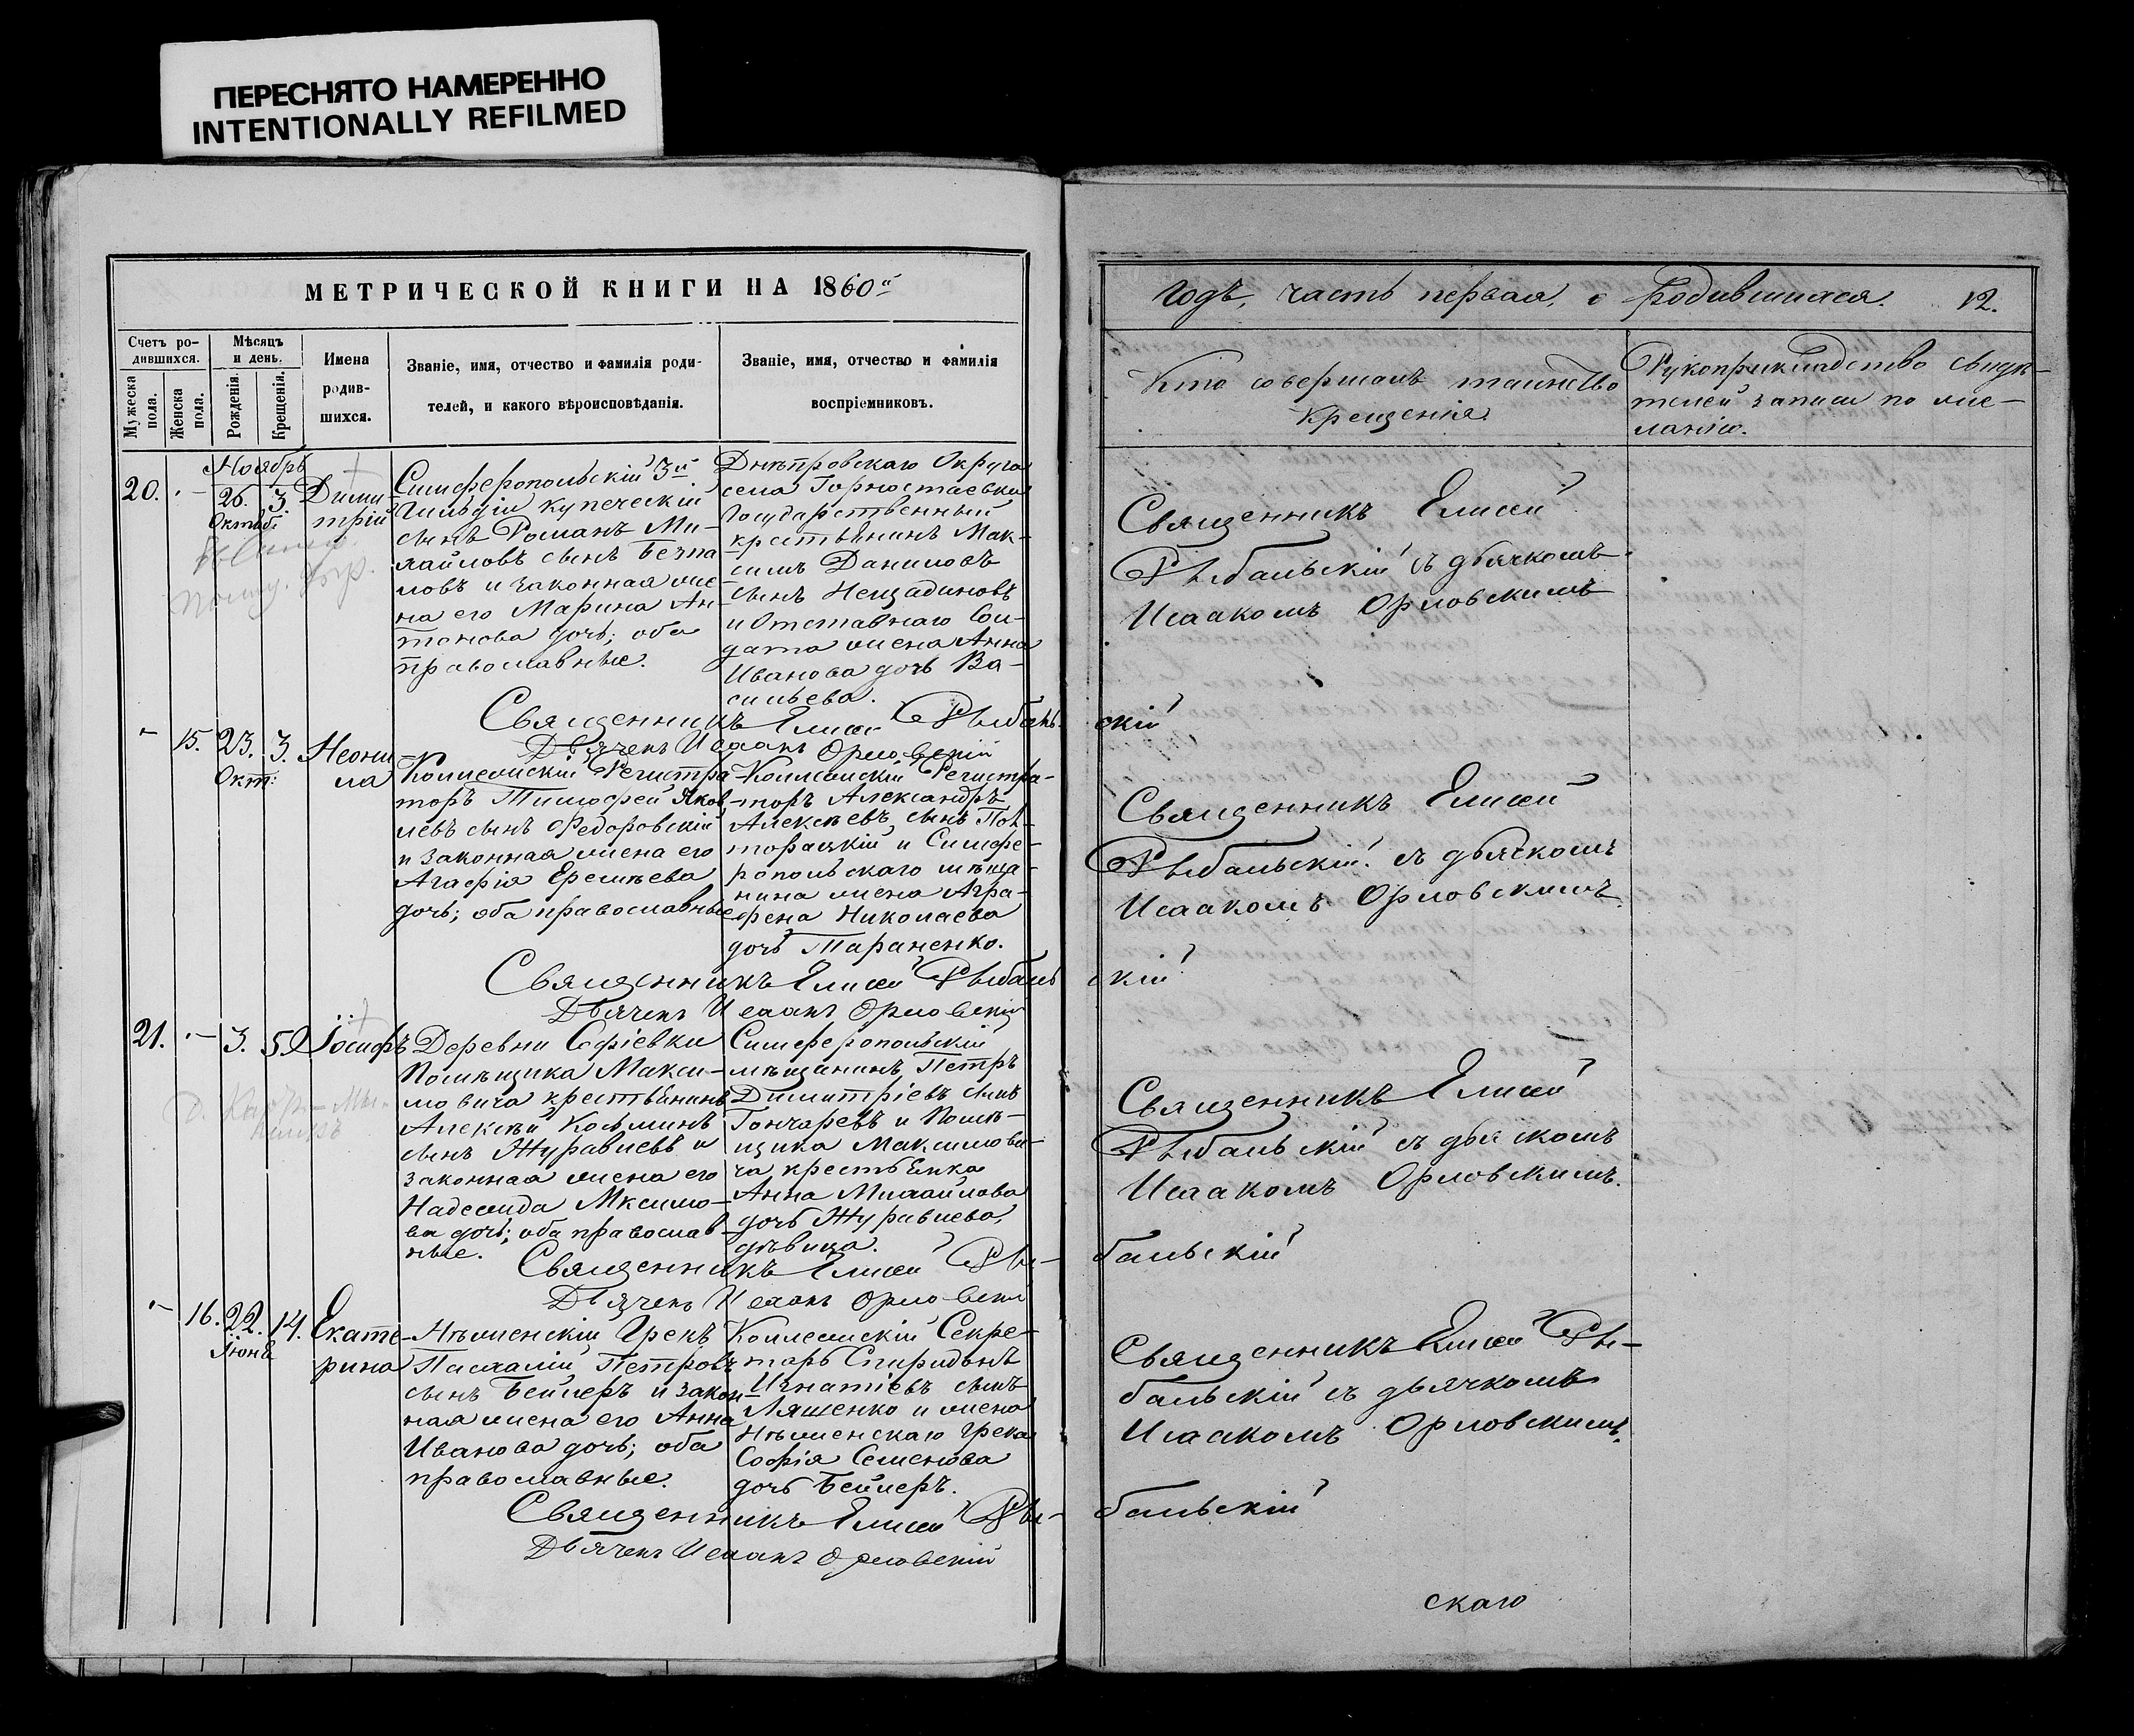 ПЕРЕСНЯТО НАМЕРЕННО
INTENTIONALLY REFILMED
МЕТРИЧЕСКОЙ КНИГИ НА 1860й
Счетъ ро-
дившихся.
Мужеска пола.
Женска пола.
Мѣсяцъ
и день.
Рожденія.
Крещенія.
Имена
родив-
шихся.
Званіе, имя, отчество и фамилія роди-
телей, и какого вѣроисповѣданія.
Званіе, имя, отчество и фамилія
воспріемниковъ.
Ноябрь
20. - 26. 3.
Октяб:
Дими-
трій
Симферопольскій 3й
Гильдіи купеческій
сынъ Романъ Ми-
хайловъ сынъ Безпа
ловъ и законная же-
на его Марина Ан-
тонова дочь; оба
православные.
Днѣпровскаго Округа
села Горностаевки
Государственный
крестьянинъ Мак-
симъ Даниловъ
сынъ Нещадиновъ
и Отставнаго Сол-
дата жена Анна
Иванова дочь Ва-
сильева.
Священникъ Елисей Рыбаль-
Дьячекъ Исаакъ Орловскій
- 15. 23. 3.
Окт:
Неони
ла
Коллежскій Регистра-
торъ Тимофей Яков-
левъ сынъ Федоровскій
и законная жена его
Агафія Еремѣева
дочь; оба православные
Коллежскій Регистра-
торъ Александръ
Алексѣевъ сынъ Пол-
торацкій и Симфе-
ропольскаго мѣща-
нина жена Агра-
фена Николаева
дочь Тараненко.
Священникъ Елисей Рыбаль
Дьячекъ Исаакъ Орловскій
21. - 3. 5.
Іосифъ
Деревни Софіевки
Помѣщика Макси-
мовича крестьянинъ
Алексѣй Козьминъ
сынъ Журавлевъ и
законная жена его
Надежда Мксимо-
ва дочь; оба православ-
ные.
Симферопольскій
мѣщанинъ Петръ
Димитріевъ сынъ
Гончаревъ и Помѣ-
щика Максимови-
ча крестьянка
Анна Михайлова
дочь Журавлева,
дѣвица.
Священникъ Елисей Ры-
Дьячекъ Исаакъ Орловскій
- 16. 22. 14.
Іюня
Екате-
рина
Нѣженскій Грекъ
Пасхалій Петровъ
сынъ Бейлеръ и закон-
ная жена его Анна
Иванова дочь; оба
православные.
Коллежскій Секре-
тарь Спиридонъ
Игнатіевъ сынъ
Ляшенко и жена
Нѣженскаго Грека
Софія Семенова
дочь Бейлеръ.
Священникъ Елисей Ры-
Дьячекъ Исаакъ Орловскій
годъ, часть первая, о родившихся. 12.
Кто совершалъ таинство
крещенія.
Рукоприкладство свидѣ-
телей записи по же-
ланію.
Священникъ Елисей
Рыбальскій съ дьячкомъ
Исаакомъ Орловскимъ
скій
Священникъ Елисей
Рыбальскій съ дьячкомъ
Исаакомъ Орловскимъ.
скій
Священникъ Елисей
Рыбальскій съ дьячкомъ
Исаакомъ Орловскимъ.
бальскій
Священникъ Елисей Ры-
бальскій съ дьячкомъ
Исаакомъ Орловскимъ.
бальскій
скаго